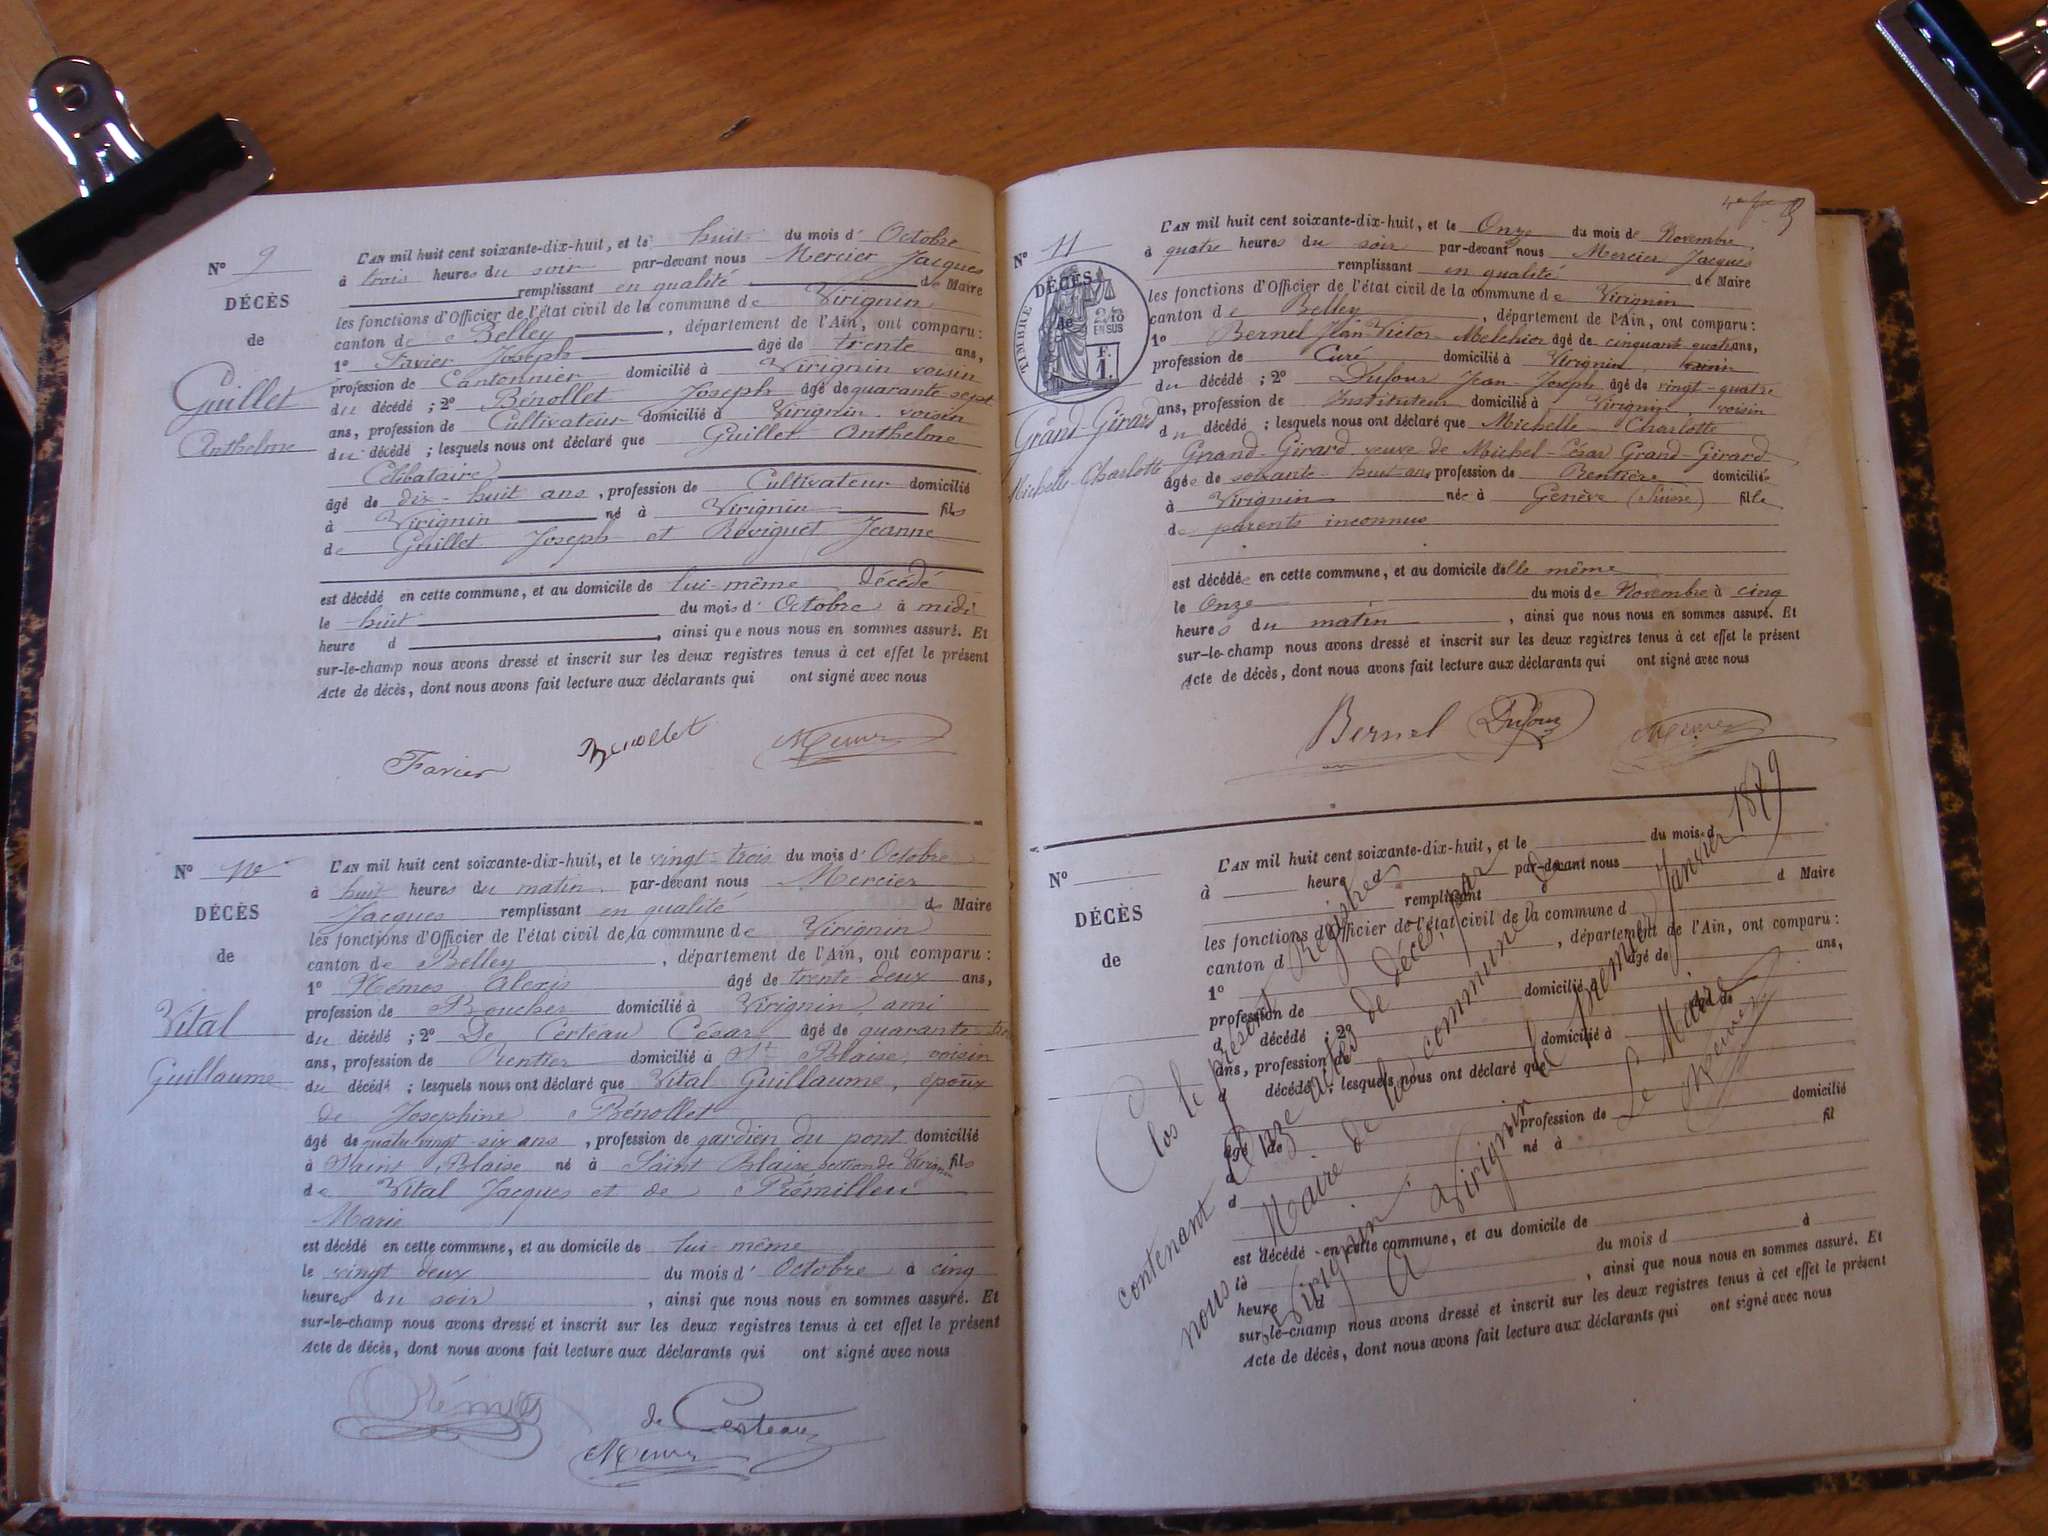 N° 9
DÉCÈS
de
Guillet
Anthelme
L'AN mil huit cent soixante-dix-huit, et le huit du mois d' Octobre
à trois heures du soir par-devant nous Mercier Jacques
remplissant en qualité de Maire
les fonctions d'Officier de l'état civil de la commune de Virignin
canton de Belley, département de l'Ain, ont comparu :
1° Favier Joseph âgé de trente ans,
profession de Cantonnier domicilié à Virignin voisin
du décédé ; 2° Benollet Joseph âgé de quarante-sept
ans, profession de Cultivateur domicilié à Virignin voisin
du décédé ; lesquels nous ont déclaré que Guillet Anthelme
Célibataire
âgé de dix-huit ans, profession de Cultivateur domicilié
à Virignin né à Virignin fils
de Guillet Joseph et Jeanne
est décédé en cette commune, et au domicile de lui-même décédé
le huit du mois d' Octobre à midi
heure d , ainsi que nous nous en sommes assuré. Et
sur-le-champ nous avons dressé et inscrit sur les deux registres tenus à cet effet le présent
Acte de décès, dont nous avons fait lecture aux déclarants qui ont signé avec nous
Favier Benollet Mercier
N°
DÉCÈS
de
Vital
Guillaume
L'AN mil huit cent soixante-dix-huit, et le vingt-trois du mois d' Octobre
à huit heures du matin par-devant nous Mercier
Jacques remplissant en qualité de Maire
les fonctions d'Officier de l'état civil de la commune de Virignin
canton de Belley, département de l'Ain, ont comparu :
1° Alexis âgé de trente-deux ans,
profession de Boucher domicilié à Virignin, ami
du décédé ; 2° De Certeau César âgé de quarante-trois
ans, profession de Rentier domicilié à St Blaise, voisin
du décédé ; lesquels nous ont déclaré que Vital Guillaume, époux
de Josephine Bénollet
âgé de quatre-vingt-six ans, profession de gardien du pont domicilié
à Saint Blaise né à Saint Blaise, section de Virignin fils
de Vital Jacques et de Rémilleu
Marie
est décédé en cette commune, et au domicile de lui-même
le vingt deux du mois d' Octobre à cinq
heures du soir, ainsi que nous nous en sommes assuré. Et
sur-le-champ nous avons dressé et inscrit sur les deux registres tenus à cet effet le présent
Acte de décès, dont nous avons fait lecture aux déclarants qui ont signé avec nous
de Certeau
Mercier
N° 11
DÉCÈS
de
TIMBRE
2/10
EN SUS
F.
1.
Grand-Girard
Michelle-Charlotte
L'AN mil huit cent soixante-dix-huit, et le Onze du mois de Novembre,
à quatre heures du soir par-devant nous Mercier Jacques
remplissant en qualité de Maire
les fonctions d'Officier de l'état civil de la commune de Virignin
canton de Belley, département de l'Ain, ont comparu :
1° Bernel Jean Victor Melchior âgé de cinquante quatre ans,
profession de Curé domicilié à Virignin,
du décédé ; 2° Dufour Jean-Joseph âgé de vingt-quatre
ans, profession de Instituteur domicilié à Virignin, voisin
du décédé ; lesquels nous ont déclaré que Michelle-Charlotte
Grand-Girard veuve de Michel-César Grand-Girard
âgée de soixante-huit ans profession de Rentière domiciliée
à Virignin née à Genève (Suisse) fille
de parents inconnus
est décédée en cette commune, et au domicile d'elle même
le Onze du mois de Novembre à cinq
heures du matin, ainsi que nous nous en sommes assuré. Et
sur-le-champ nous avons dressé et inscrit sur les deux registres tenus à cet effet le présent
Acte de décès, dont nous avons fait lecture aux déclarants qui ont signé avec nous
Bernel Dufour Mercier
N°
DÉCÈS
de
L'AN mil huit cent soixante-dix-huit, et le du mois d
à heure d par-devant nous
remplissant d Maire
les fonctions d'Officier de l'état civil de la commune d
canton d , département de l'Ain, ont comparu :
1° âgé de ans,
profession de domicilié à
d décédé ; 2° âgé de
ans, profession de domicilié à
d décédé ; lesquels nous ont déclaré que
âgé de profession de domicilié
à né à fil
d
est décédé en cette commune, et au domicile de
le du mois d à
heure d , ainsi que nous nous en sommes assuré. Et
sur-le-champ nous avons dressé et inscrit sur les deux registres tenus à cet effet le présent
Acte de décès, dont nous avons fait lecture aux déclarants qui ont signé avec nous
Clos le présent Registre
contenant Onze actes de décès, par
nous Maire de la commune de
Virignin
A Virignin le premier Janvier 1879
Le Maire
Mercier